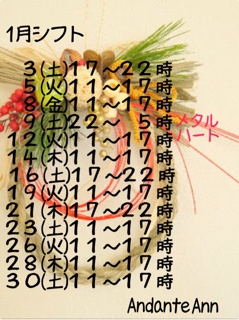 1月シフト
3(土)17〜22時
5(火)11〜17時
8(金)11〜17時
9(土)22〜 5時
メタル
ハート
12(火)11〜17時
14(木)11〜17時
16(土)17〜22時
19(火)11〜17時
21(木)17〜22時
23(土)11〜17時
26(火)11〜17時
28(木)11〜17時
30(土)11〜17時
Andante Ann